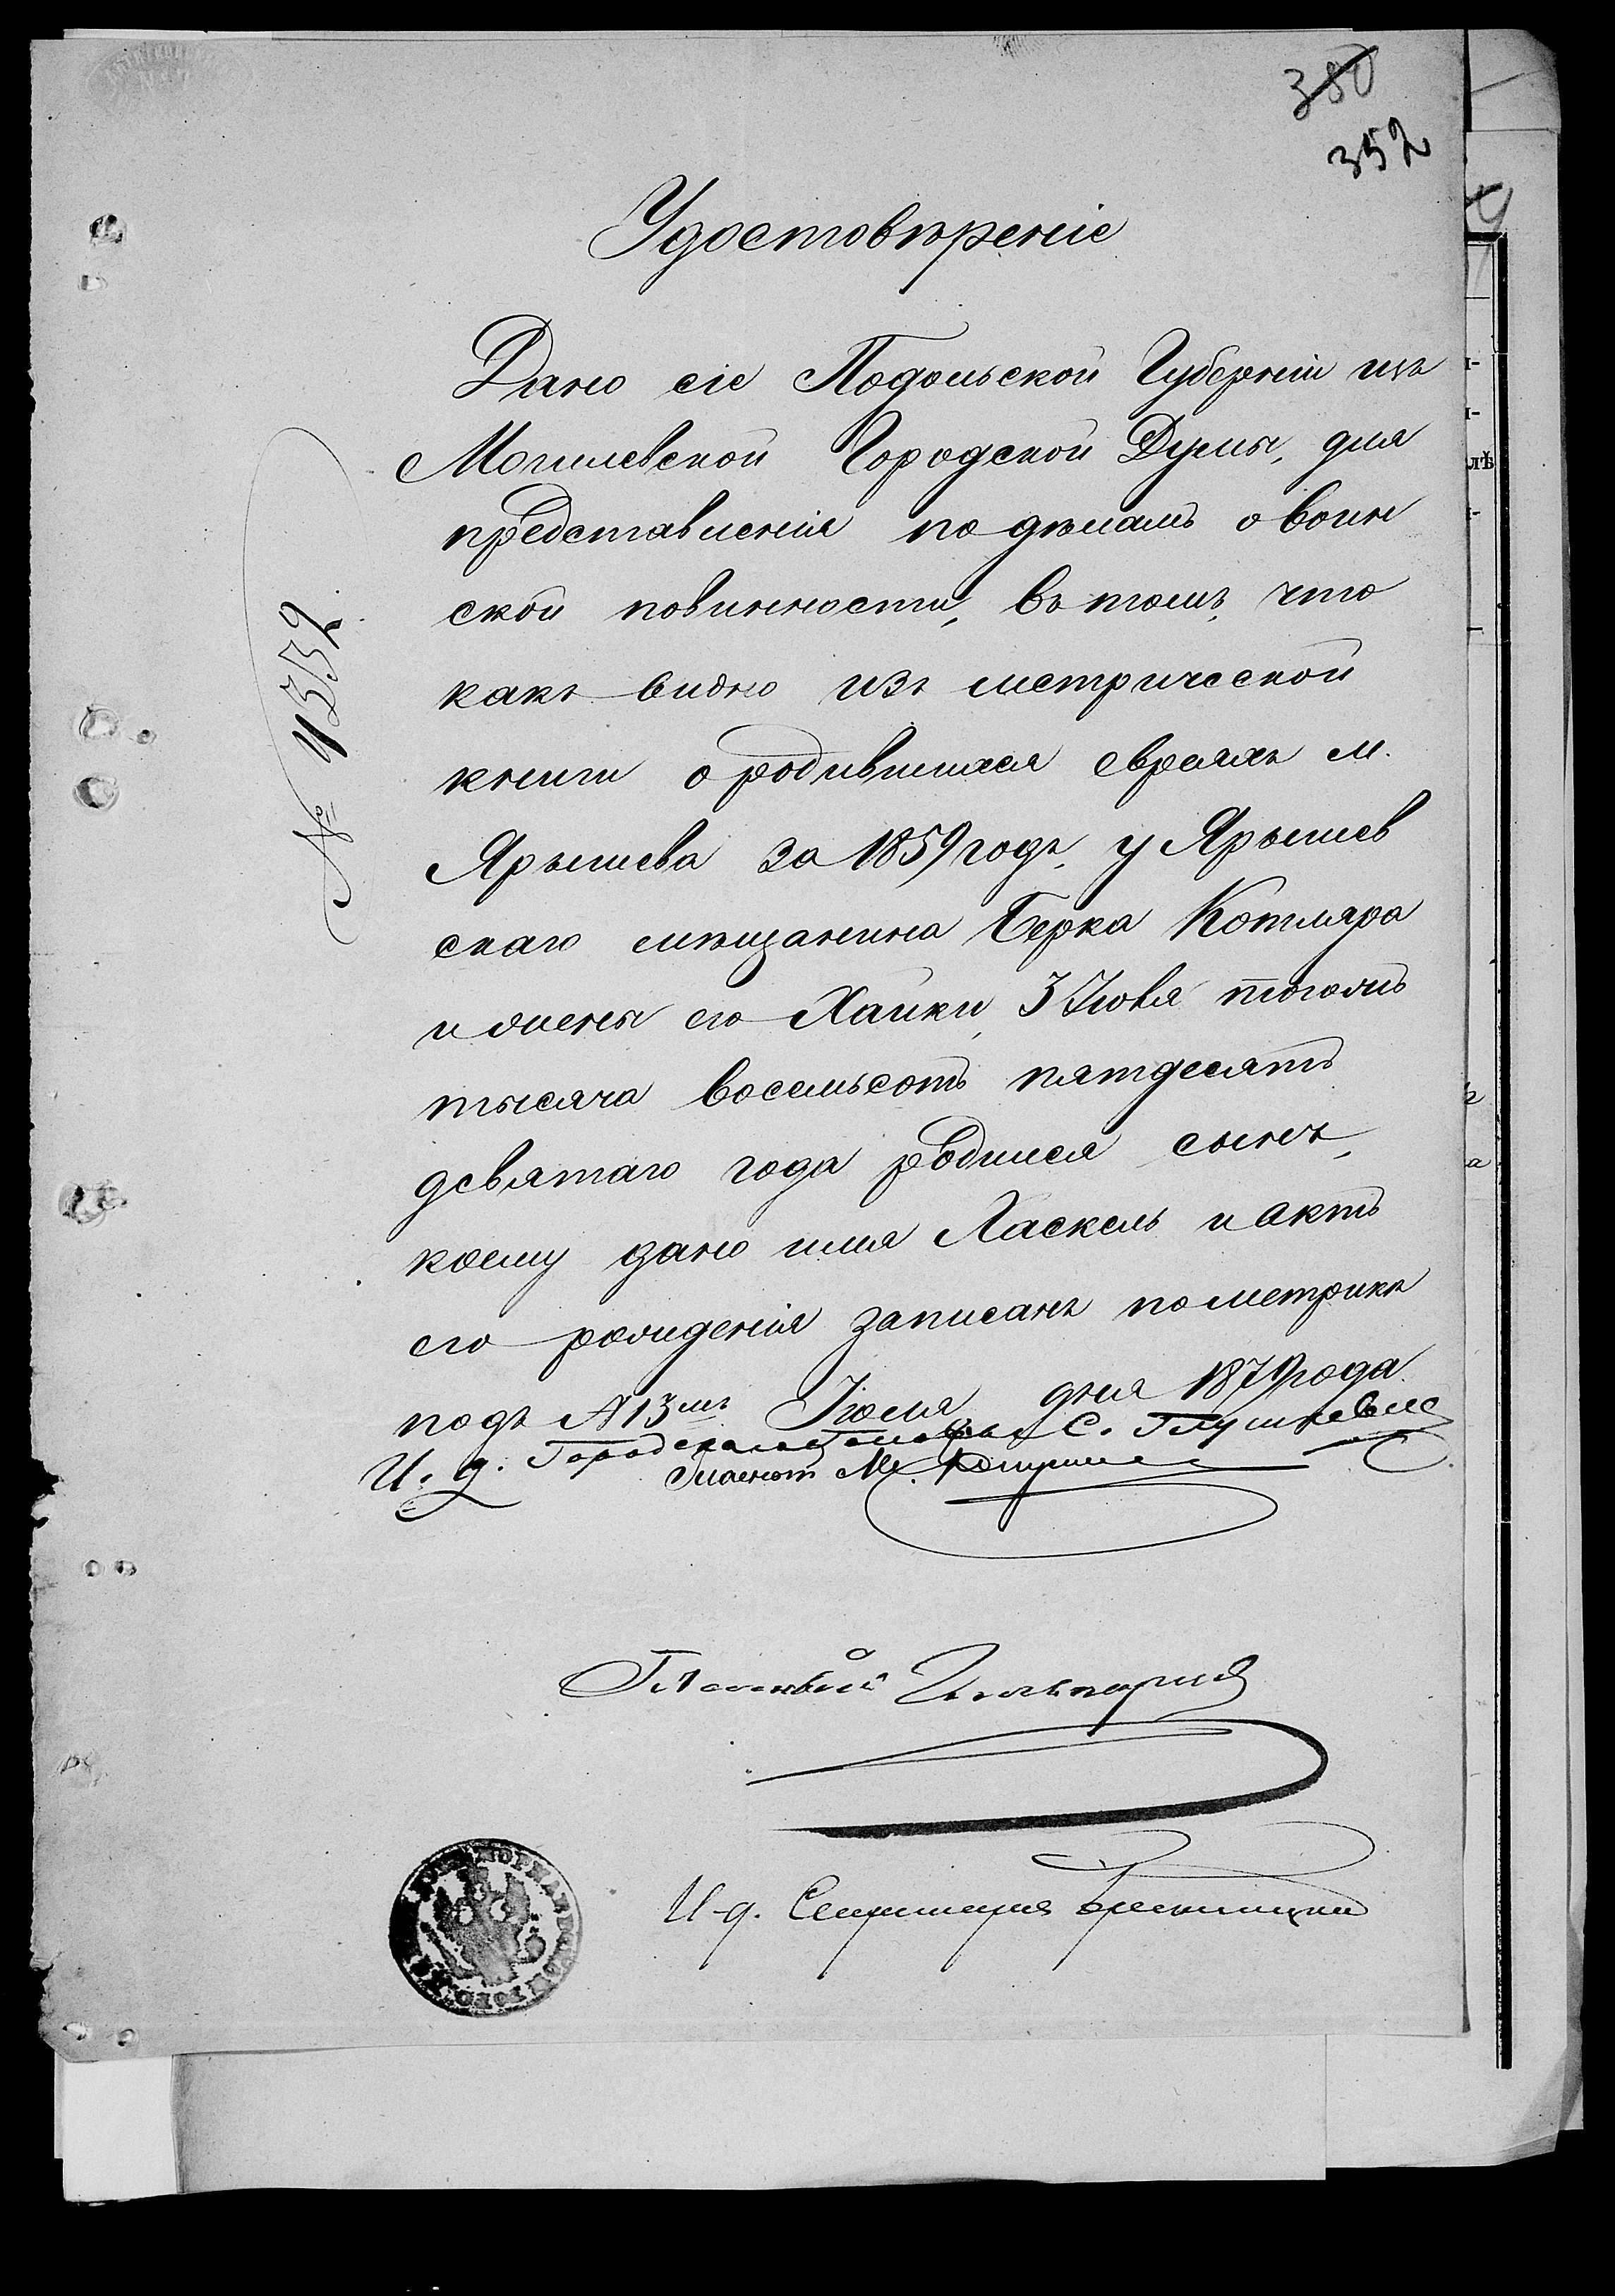 380
352
Удостовѣреніе
Дано сіе Подольской Губерніи изъ
Могилевской Городской Думы, для
представленія по дѣламъ о воин
ской повинности, въ томъ, что
какъ видно изъ метрической
книги о родившихся евреяхъ м.
Ярышева за 1859 годъ, у Ярышев
скаго мѣщанина Берка Котляра
и жены его Хайки, 3 Іюня тогожъ
тысяча восемьсотъ пятдесятъ
девятаго года родился сынъ,
коему дано имя Хаскель и актъ
его рожденія записанъ по метрикѣ
подъ №13мъ Іюля дня 1879 года
И. д. Городскаго Головы С.
Гласный М.
Гласный
И. д. Секретаря
№ 4552